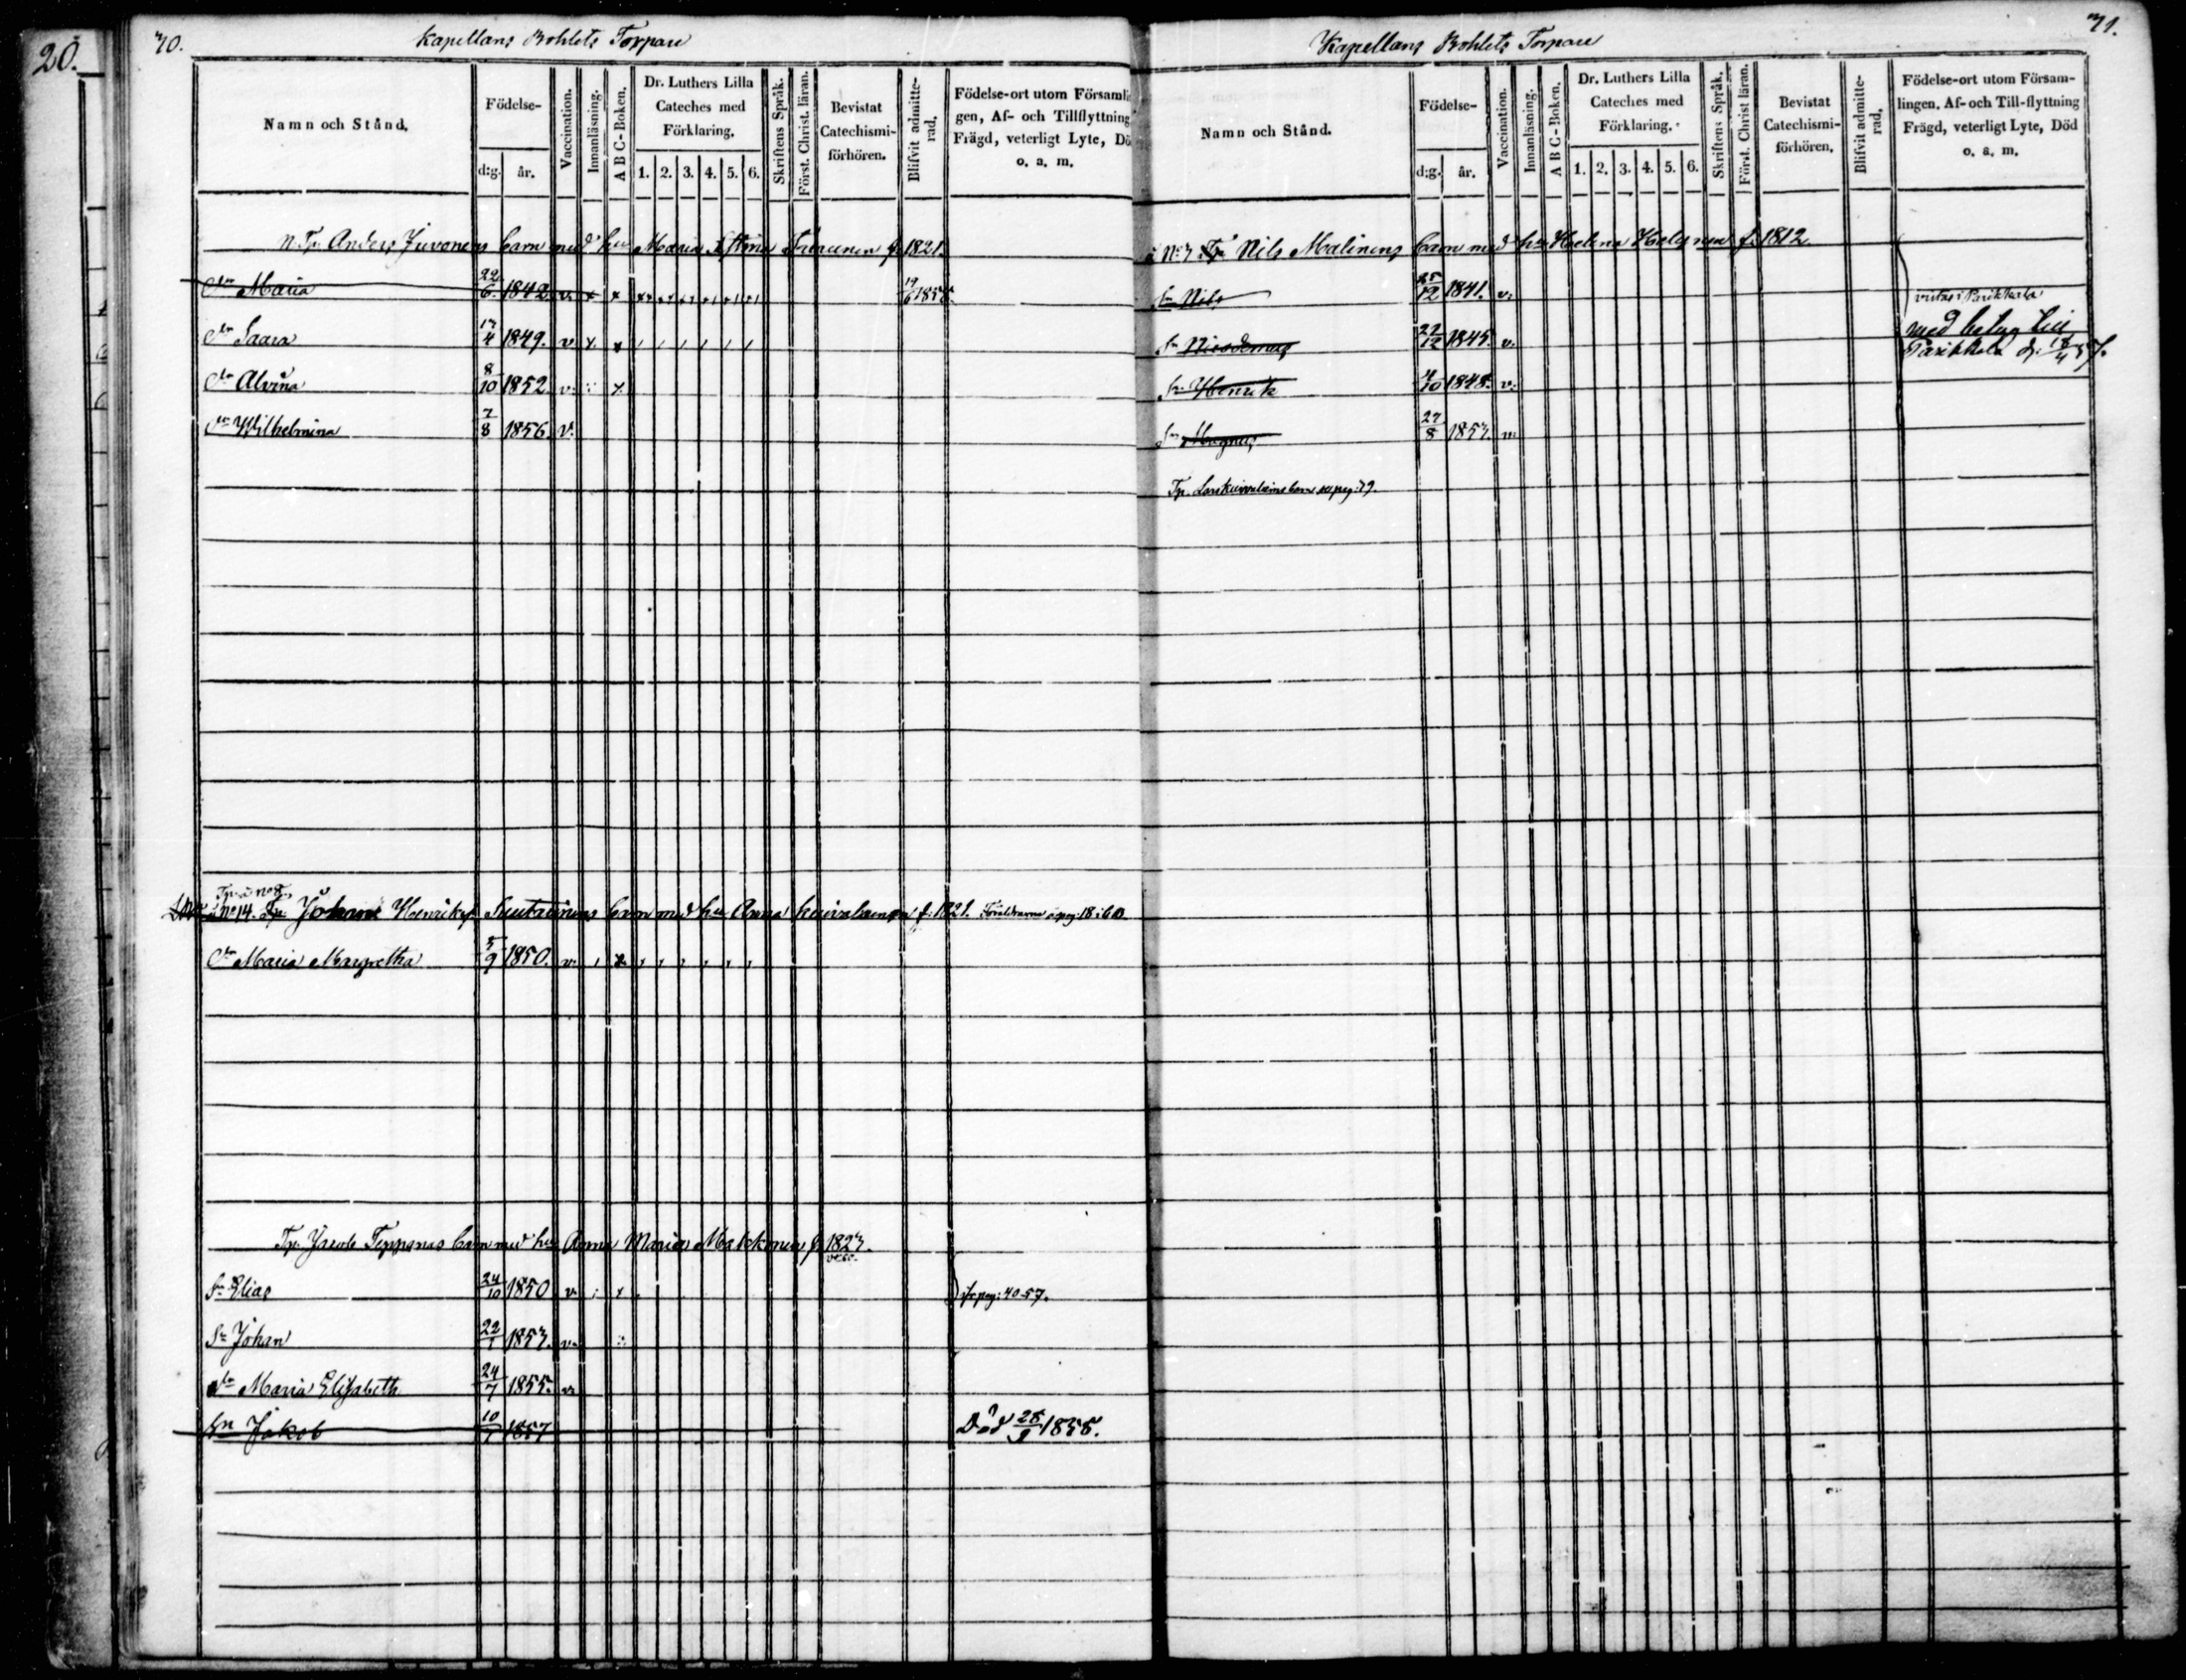 20.
70.
Kapellans Bohlets Torpare
Namn och Stånd.
Födelse-
d:g. år.
Vaccination.
Innanläsning.
A B C-Boken.
Dr. Luthers Lilla
Cateches med
Förklaring.
1. 2. 3. 4. 5. 6.
Skriftens Språk.
Först. Christ. läran.
Bevistat
Catechismi-
förhören.
Blifvit admitte-
rad.
Födelse-ort utom Församl
gen, Af- och Tillflyttning
Frägd, veterligt Lyte, Dö
o. a. m.
Tp. Anders Juvonens barn med hu Maria f. 1821.
Dr Maria 22/6 1842 v. x x 19/6 1858.
Dr Saara 17/4 1849. v x x
Dr Alvina 8/10 1852 v. x
Dr Wilhelmina 7/8 1856 v.
Tp. å No 8.
No 14. Tp. Johan Henriks barn med hu Anna f. 1821. Föräldrarne å pag. 18
Dr Maria Margretha 5/9 1850. v.
Tp. Jacob Teppanas barn med hu Anna Maria Makkonen f. 1823.
Sn Elias 24/10 1850 v. x
pag: 40-57.
Sn Johan 22/1 1853. v.
Dr Maria Elisabeth 24/7 1855. v.
Sn Jakob 10/7 1857
Död 28/9 1858.
71.
Kapellans Bohlets Torpare
Namn och Stånd.
Födelse-
d:g. år.
Vaccination.
Innanläsning.
A B C-Boken.
Dr. Luthers Lilla
Cateches med
Förklaring.
1. 2. 3. 4. 5. 6.
Skriftens Språk.
Förd. Christ läran.
Bevistat
Catechismi-
förhören.
Blifvit admitte-
rad.
Födelse-ort utom Försam-
lingen. Af- och Till-flyttning
Frägd, veterligt Lyte, Död
o. a. m.
å No 7 Tp. Nils Malinens barn med hu Helena f. 1812.
Sn Nils 25/12 1841. v.
vistas i Parikkala
Sn Nicodemus 27/12 1845. v.
med betyg till
Parikkala d: 18/4 57.
Sn Henrik 4/10 1848. v.
Sn Magnus 27/8 1853. v.
Tp. Lars Kuivalains barn se pag: 79.